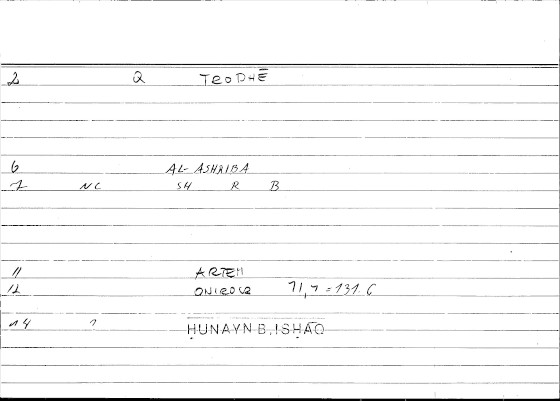 2 Q TROPHĒ
6 AL-ASHRIBA
7 NC SH R B
11 ARTEM
12 ONIROCR 71,7 = 131.6
14 1 ḤUNAYN B. ISḤĀQ